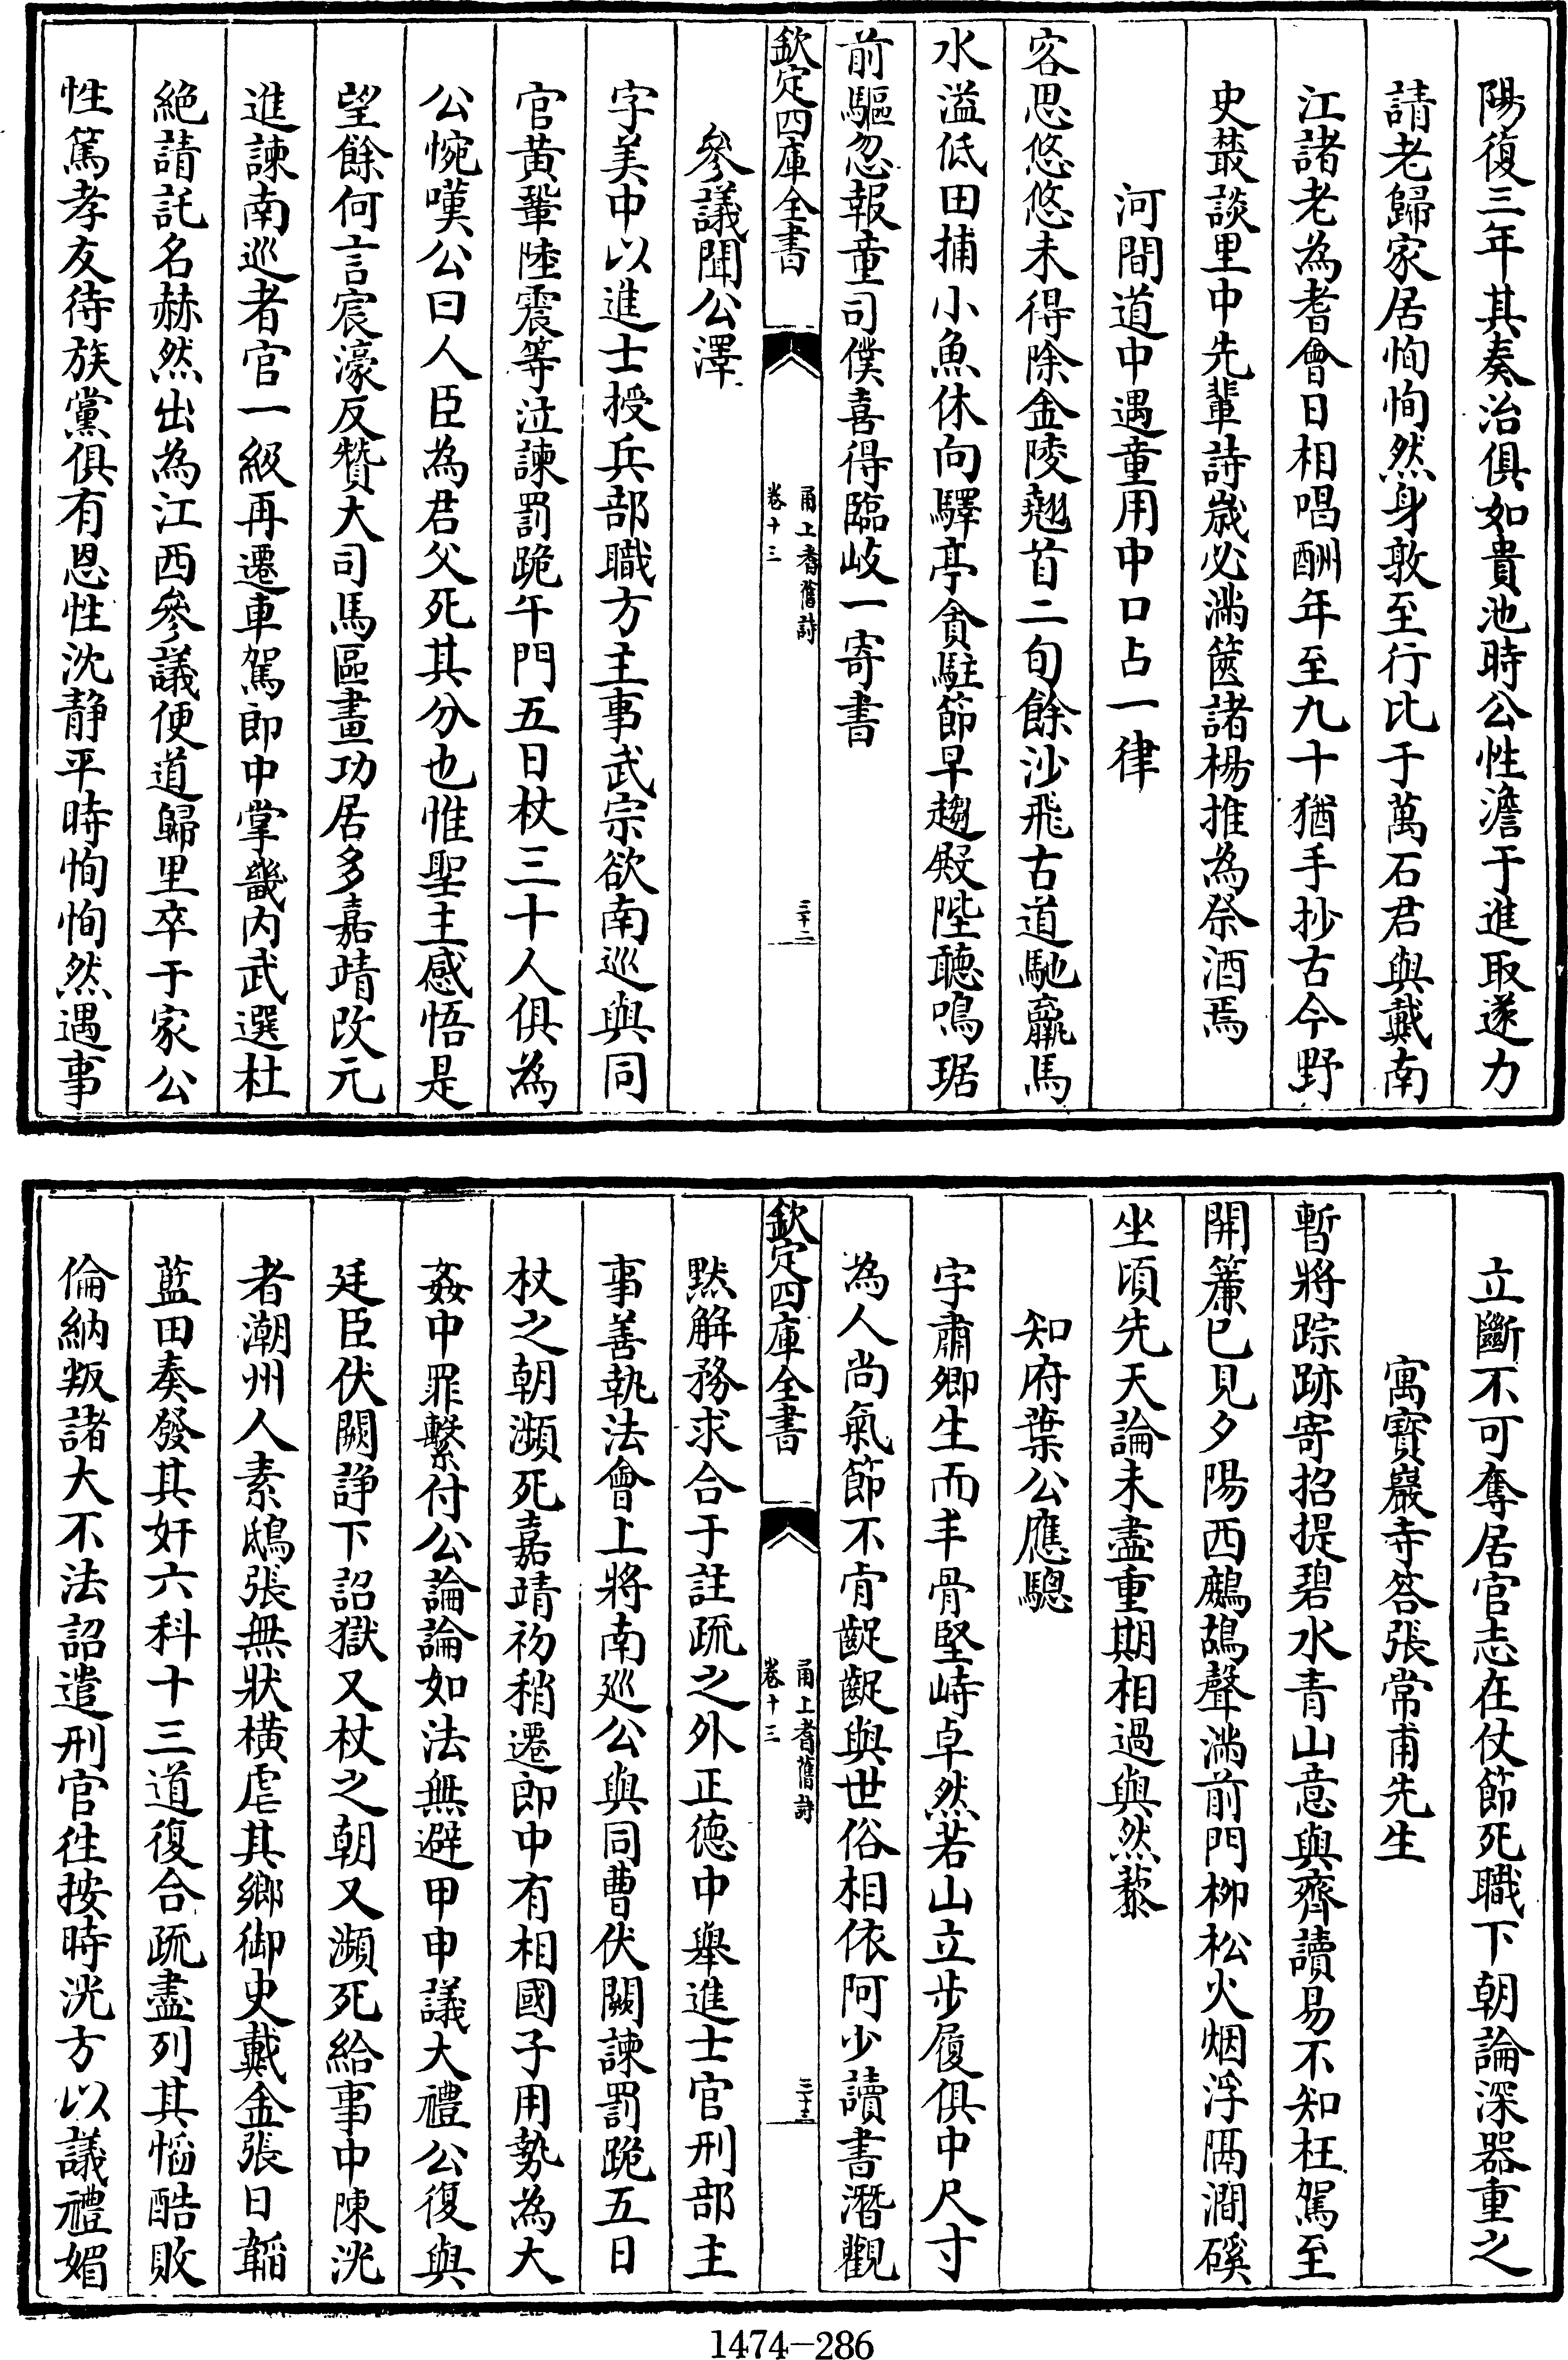 陽復三年其奏治俱如貴池時公性澹于進取遂力
請老歸家居恂恂然身敦至行比于萬石君與戴南
江諸老為耆會日相唱酬年至九十猶手抄古今野
史叢談里中先輩詩歲必滿篋諸楊推為祭酒焉
河間道中遇童用中口占一律
客思悠悠未得除金陵翹首二旬餘沙飛古道馳羸馬
水溢低田捕小魚休向驛亭貪駐節早趨殿陛聽鳴琚
前驅忽報童司僕喜得臨岐一寄書
欽定四庫全書
甬上耆舊詩
卷十三
三十二
參議聞公澤
字美中以進士授兵部職方主事武宗欲南巡與同
官黃鞏陸震等泣諫罰跪午門五日杖三十人俱為
公惋嘆公曰人臣為君父死其分也惟聖主感悟是
望餘何言宸濠反贊大司馬區畫功居多嘉靖改元
進諫南巡者官一級再遷車駕郎中掌畿內武選杜
絕請託名赫然出為江西參議便道歸里卒于家公
性篤孝友待族黨俱有恩性沈靜平時恂恂然遇事
立斷不可奪居官志在仗節死職下朝論深器重之
寓寶巖寺答張常甫先生
暫將踪跡寄招提碧水青山意與齊讀易不知枉駕至
開簾已見夕陽西鷓鴣聲滿前門柳松火烟浮隔澗磎
坐頃先天論未盡重期相過與然藜
知府葉公應驄
字肅卿生而丰骨堅峙卓然若山立步履俱中尺寸
為人尚氣節不肯齪齪與世俗相依阿少讀書潛觀
欽定四庫全書
甬上耆舊詩
卷十三
三十三
黙解務求合于註疏之外正德中舉進士官刑部主
事善執法會上將南巡公與同曹伏闕諫罰跪五日
杖之朝瀕死嘉靖初稍遷郎中有相國子用勢為大
姦中罪繫付公論論如法無避甲申議大禮公復與
廷臣伏闕諍下詔獄又杖之朝又瀕死給事中陳洸
者潮州人素鴟張無狀橫虐其鄉御史戴金張日韜
藍田奏發其奸六科十三道復合疏盡列其慆酷敗
倫納叛諸大不法詔遣刑官往按時洸方以議禮媚
1474-286